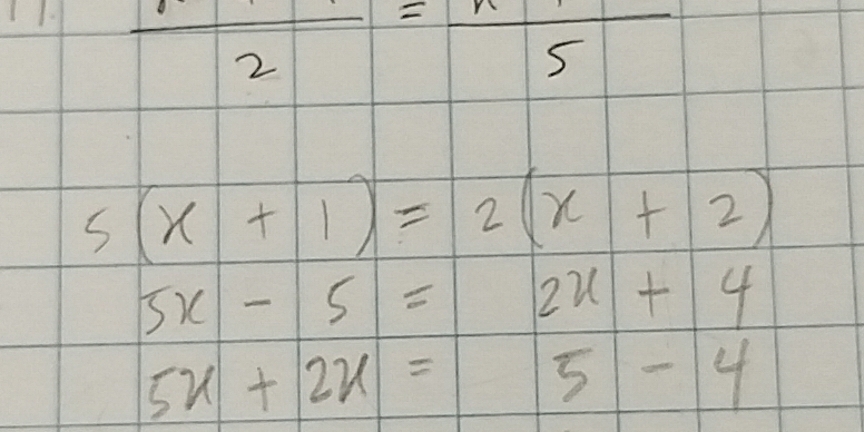 =
2 5
5(x + 1) = 2(x + 2)
5x - 5 = 2x + 4
5x + 2x = 5 - 4